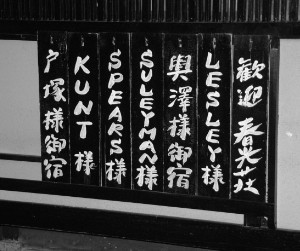 歓迎 春光荘
LESLEY様
與澤様御宿
SULEYMAN様
SPEARS様
KUNT様
戸塚様御宿